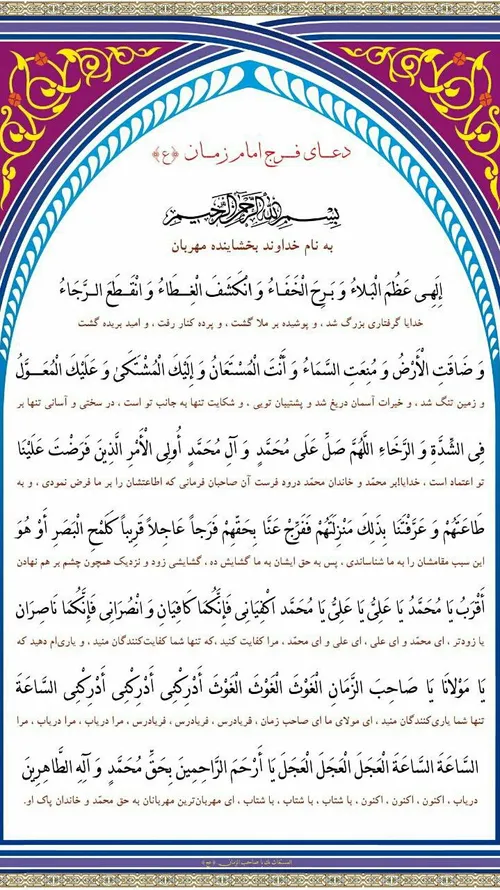 دعـای فـرج امام زمـان ﴿ع﴾
بِسْمِ اللهِ الرَّحْمنِ الرَّحیمِ
به نام خداوند بخشاینده مهربان
إِلَهِی عَظُمَ الْبَلاءُ وَ بَرِحَ الْخَفَاءُ وَ انْکَشَفَ الْغِطَاءُ وَ انْقَطَعَ الرَّجَاءُ
خدایا گرفتاری بزرگ شد ، و پوشیده بر ملا گشت ، و پرده کنار رفت ، و امید بریده گشت
وَ ضَاقَتِ الْأَرْضُ وَ مُنِعَتِ السَّمَاءُ وَ أَنْتَ الْمُسْتَعَانُ وَ إِلَیْکَ الْمُشْتَکَیٰ وَ عَلَیْکَ الْمُعَـوَّلُ
و زمین تنگ شد ، و خیرات آسمان دریغ شد و پشتیبان تویی ، و شکایت تنها به جانب تو است ، در سختی و آسانی تنها بر
فِی الشِّدَّةِ وَ الرَّخَاءِ اللَّهُمَّ صَلِّ عَلَی مُحَمَّدٍ وَ آلِ مُحَمَّدٍ أُولِی الْأَمْرِ الَّذِینَ فَرَضْتَ عَلَیْنَا
تو اعتماد است ، خدایا!بر محمّد و خاندان محمّد درود فرست آن صاحبان فرمانی که اطاعتشان را بر ما فرض نمودی ، و به
طَاعَتَهُمْ وَ عَرَّفْتَنَا بِذَلِکَ مَنْزِلَتَهُمْ فَفَرِّجْ عَنَّا بِحَقِّهِمْ فَرَجاً عَاجِلاً قَرِیباً کَلَمْحِ الْبَصَرِ أَوْ هُوَ
این سبب مقامشان را به ما شناساندی ، پس به حق ایشان به ما گشایش ده ، گشایشی زود و نزدیک همچون چشم بر هم نهادن
أَقْرَبُ یَا مُحَمَّدُ یَا عَلِیُّ یَا عَلِیُّ یَا مُحَمَّد اکْفِیَانِی فَإِنَّکُمَا کَافِیَانِ وَ انْصُرَانِی فَإِنَّکُمَا نَاصِرَانِ
یا زودتر ، ای محمّد و ای علی ، ای علی و ای محمّد ، مرا کفایت کنید ،که تنها شما کفایت‌کنندگان منید ، و یاری‌ام دهید که
یَا مَوْلَانَا یَا صَاحِبَ الزَّمَانِ الْغَوْثَ الْغَوْثَ الْغَوْثَ أَدْرِکْنِی أَدْرِکْنِی أَدْرِکْنِی السَّاعَةَ
تنها شما یاری‌کنندگان منید ، ای مولای ما ای صاحب زمان ، فریادرس ، فریادرس ، فریادرس ، مرا دریاب ، مرا دریاب ، مرا
السَّاعَةَ السَّاعَةَ الْعَجَلَ الْعَجَلَ الْعَجَلَ یَا أَرْحَمَ الرَّاحِمِینَ بِحَقِّ مُحَمَّدٍ وَ آلِهِ الطَّاهِرِینَ
دریاب ، اکنون ، اکنون ، اکنون ، با شتاب ، با شتاب ، با شتاب ، ای مهربان‌ترین مهربانان به حق محمّد و خاندان پاک او.